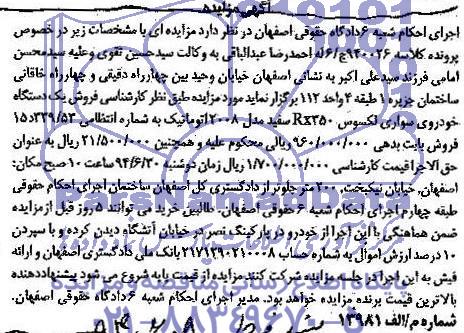 آگهی مزایده
اجرای احکام شعبه ۶ دادگاه حقوقی اصفهان در نظر دارد مزایده ای با مشخصات زیر در خصوص
پرونده کلاسه ۹۴۰۰۲۶ج/۶ له احمدرضا عبدالباقی به وکالت سیدحسین تقوی وعلیه سیدمحسن
امامی فرزند سیدعلی اکبر به نشانی اصفهان خیابان وحید بین چهارراه دقیقی و چهارراه خاقانی
ساختمان جزیره ۱ طبقه ۴ واحد ۱۱۲ برگزار نماید مورد مزایده طبق نظر کارشناسی فروش یک دستگاه
خودروی سواری لکسوس RX۳۵۰ سفید مدل ۲۰۰۸ اتوماتیک به شماره انتظامی ۱۵د۳۳۹/۵۳
فروش بابت بدهی ۹۶۰/۰۰۰/۰۰۰ ریالی محکوم علیه و همچنین ۲۱/۵۰۰/۰۰۰ ریال به عنوان
حق الاجرا قیمت کارشناسی ۱/۷۰۰/۰۰۰/۰۰۰ ریال زمان دوشنبه ۹۴/۶/۳۰ ساعت ۱۰ صبح مکان:
اصفهان، خیابان نیکبخت، ۲۰۰ متر جلوتر از دادگستری کل اصفهان ساختمان اجرای احکام حقوقی
طبقه چهارم اجرای احکام شعبه ۶ حقوقی اصفهان. طالبین خرید می توانند ۵ روز قبل از مزایده
ضمن هماهنگی با این اجرا از خودرو در پارکینگ نصر در خیابان آتشگاه دیدن کرده و با سپردن
۱۰ درصد ارزش اموال به شماره حساب ۲۱۷۱۲۹۰۲۱۰۰۰۸ بانک ملی دادگستری اصفهان و ارائه
فیش به این اجرا در جلسه مزایده شرکت کنند مزایده از قیمت پایه شروع می شود پیشنهاددهنده
بالاترین قیمت برنده مزایده خواهد بود. مدیر اجرای احکام شعبه ۶ دادگاه حقوقی اصفهان.
شماره م/الف ۱۳۹۸۱
ParsNamadData
پایگاه اطلاع رسانی مناقصه و مزایده
۰۲۱-۸۸۳۴۹۶۷۰